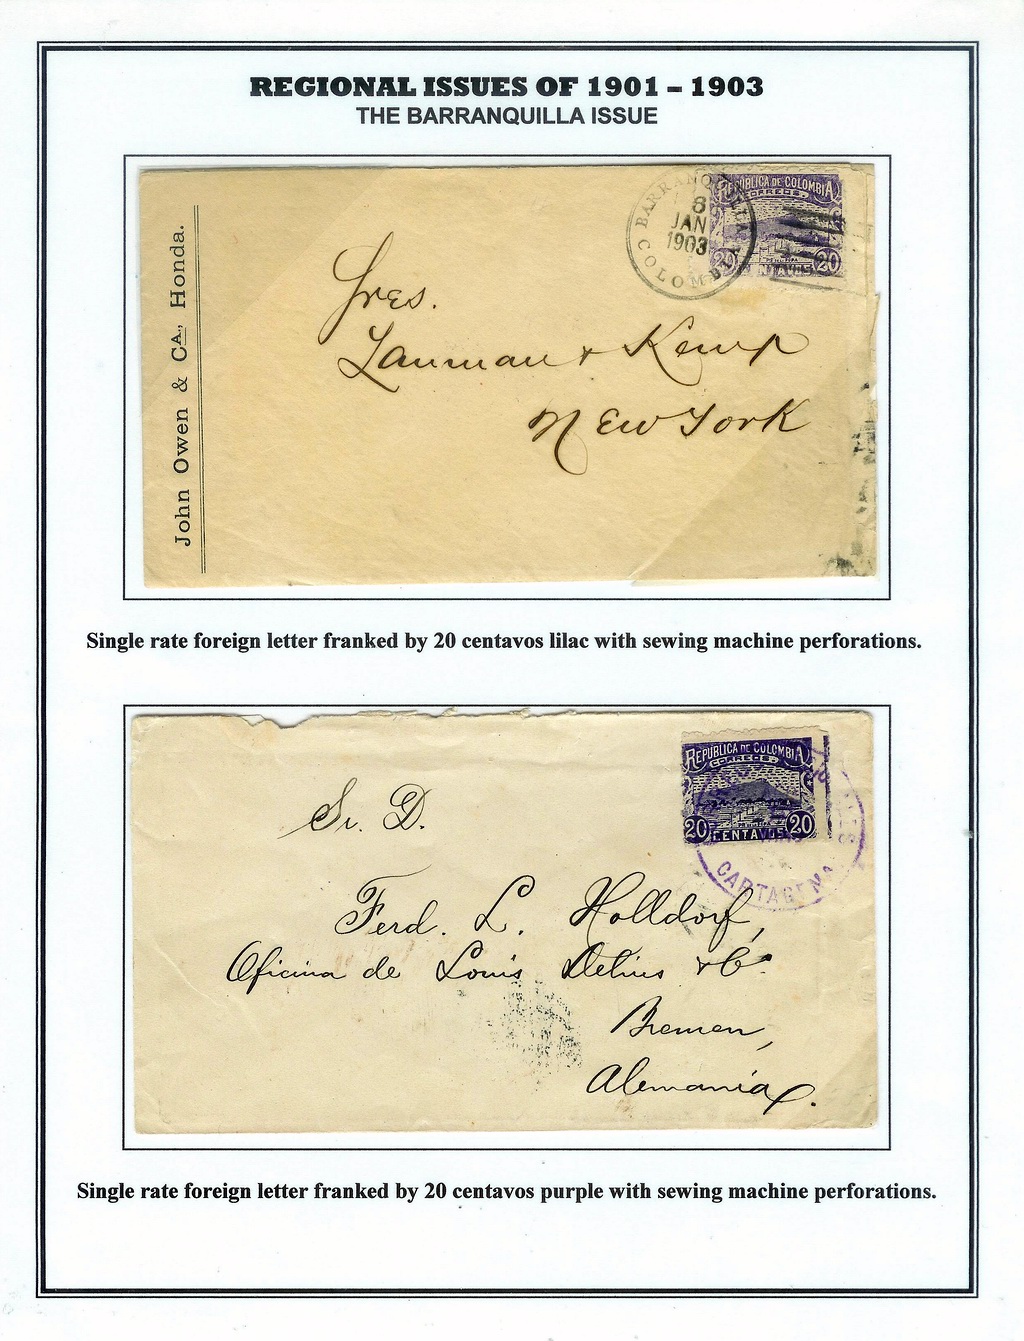 REGIONAL ISSUES OF 1901 – 1903
THE BARRANQUILLA ISSUE
John Owen & CA., Honda.
BARRANQUILLA
8
JAN
1903
COLOMBIA
REPUBLICA DE COLOMBIA
CORREOS.
20 CENTAVOS 20
Sres.
Lanman & Kemp
New York
Single rate foreign letter franked by 20 centavos lilac with sewing machine perforations.
REPUBLICA DE COLOMBIA
CORREOS.
20 CENTAVOS 20
CARTAGENA
Sr. D.
Ferd. L. Holldorf,
Oficina de Louis Delius & Co.
Bremen,
Alemania.
Single rate foreign letter franked by 20 centavos purple with sewing machine perforations.